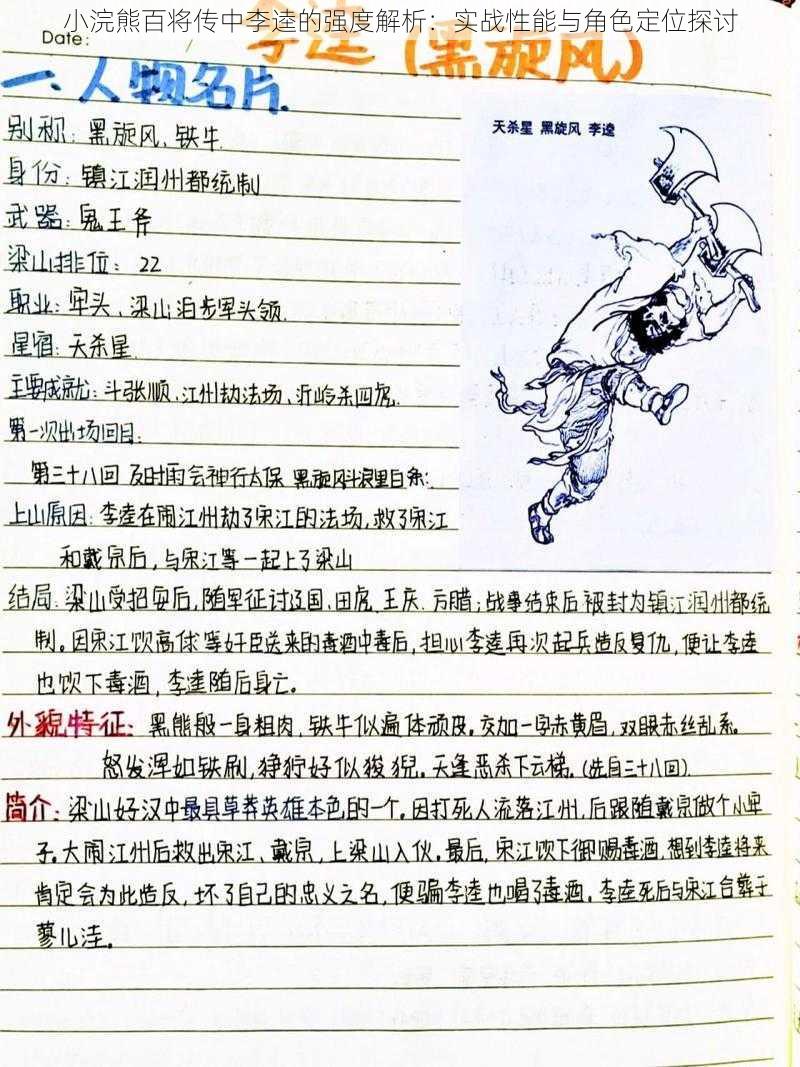 小浣熊百将传中李逵的强度解析：实战性能与角色定位探讨
Date:
李逵(黑旋风)
一、人物名片.
天杀星 黑旋风 李逵
别称：黑旋风、铁牛
身份：镇江润州都统制
武器：鬼王斧
梁山排位：22
职业：牢头、梁山泊步军头领.
星宿：天杀星.
主要成就：斗张顺、江州劫法场、沂岭杀四虎.
第一次出场回目：
第三十八回 及时雨会神行太保 黑旋风斗浪里白条:
上山原因：李逵在闹江州劫了宋江的法场，救了宋江
和戴宗后，与宋江等一起上了梁山
结局：梁山受招安后，随军征讨辽国、田虎、王庆、方腊；战事结束后被封为镇江润州都统
制。因宋江饮高俅等奸臣送来的毒酒中毒后，担心李逵再次起兵造反复仇，便让李逵
也饮下毒酒，李逵随后身亡。
外貌特征：黑熊般一身粗肉，铁牛似遍体顽皮。交加一字赤黄眉，双眼赤丝乱系。
怒发浑如铁刷，狰狞好似狻猊。天蓬恶杀下云梯。(选自三十八回)
简介：梁山好汉中最具草莽英雄本色的一个。因打死人流落江州，后跟随戴宗做个小牢
子。大闹江州后救出宋江、戴宗，上梁山入伙。最后，宋江饮下御赐毒酒，想到李逵将来
肯定会为此造反，坏了自己的忠义之名，便骗李逵也喝了毒酒。李逵死后与宋江合葬于
蓼儿洼。